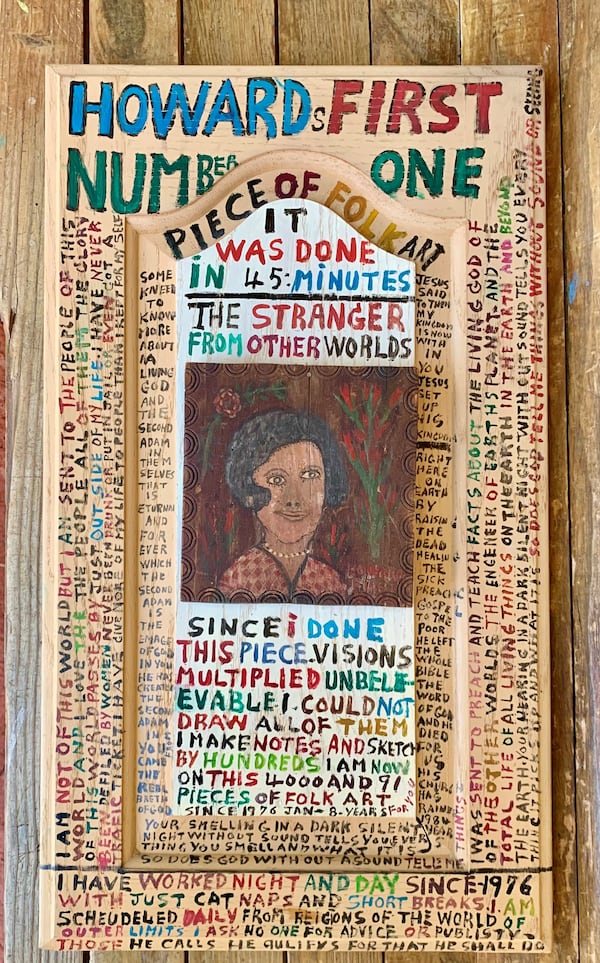 HOWARDs FIRST
NUMBER ONE
PIECE OF FOLK ART
IT
WAS DONE
iN 45:MiNUTES
THE STRANGER
FROM OTHER WORLDS
SINCE i DONE
THIS PIECE.VISIONS
MULTIPLIED UNBELE-
EVABLE.I.COULD NOT
DRAW ALL OF THEM
I MAKE NOTES AND SKETCH
BY HUNDREDS I AM NOW
ON THIS 4000 AND 91
PIECES OF FOLK ART
SINCE 1976 JAN-8-YEARS FOR YOU
SOME
KNEED
TO
KNOW
MORE
ABOUT
A
LIVING
GOD
AND
THE
SECOND
ADAM
IN
THEM
SELVES
THAT
IS
ETURNAL
AND
FOR
EVER
WHICH
THE
SECOND
ADAM
IS
THE
EMAGE
OF GOD
IN YOU
HE HAS
CREATED
THE
SECOND
ADAM
IN
YOU
CAME
THE
REAL
BREATH
OF GOD
JESUS
SAID
TO THEM
MY
KINGDOM
IS NOW
WITH
IN
YOU
JESUS
SET
UP
HIS
KINGDOM
RIGHT
HERE
ON
EARTH
BY
RAISIN
THE
DEAD
HEALIN
THE
SICK
PREACH
GOSPE
TO THE
POOR
HE LEFT
THE
WHOLE
BIBLE
THE
WORD
OF GOD
AND HE
DIED
FOR
US
HIS
CHURCH
HAS
RAN
1984
YEARS
I AM NOT OF THIS WORLD BUT I AM SENT TO THE PEOPLE OF THIS
WORLD AND I LOVE THE THE PEOPLE ALL OF THEM THE GLORY
OF THIS WORLD PASSES BY JUST OUT SIDE OF MY LIFE I HAVE NEVER
BEEN DEFILED BY WOMEN NEVER BEEN DRUNK OR PUT IN JAIL OR EVEN GOT A
TRAFFIC TICKET I HAVE GIVE MORE OF MY LIFE TO PEOPLE THAN I KEPT FOR MY SELF
THINGS I
WAS SENT TO PREACH AND TEACH FACTS ABOUT THE LIVING GOD OF
OF THE OTHER WORLDS THE ENGENEER OF EARTHS PLANET-AND THE
TOTAL LIFE OF ALL LIVING THINGS ON THE EARTH IN THE EARTH AND BEYOND
THE EARTH-YOUR HEARING IN A DARK SILENT NIGHT WITH OUT SOUND TELLS YOU EVERY
THING IT PICKS UP AND WHAT IT IS SO DOES GOD TELL ME THINGS WITHOUT SOUND OR SEEING
YOUR SMELLING IN A DARK SILENT
NIGHT WITH OUT SOUND TELLS YOU EVERY
THING YOU SMELL AND WHAT IT IS
SO DOES GOD WITH OUT A SOUND TELL ME
I HAVE WORKED NIGHT AND DAY SINCE-1976
WITH JUST CAT NAPS AND SHORT BREAKS.I.AM
SCHEUDELED DAILY FROM REIGIONS OF THE WORLD OF
OUTER LIMITS I ASK NO ONE FOR ADVICE OR PUBLISTY-
THOSE HE CALLS HE QULIFYS FOR THAT HE SHALL DO